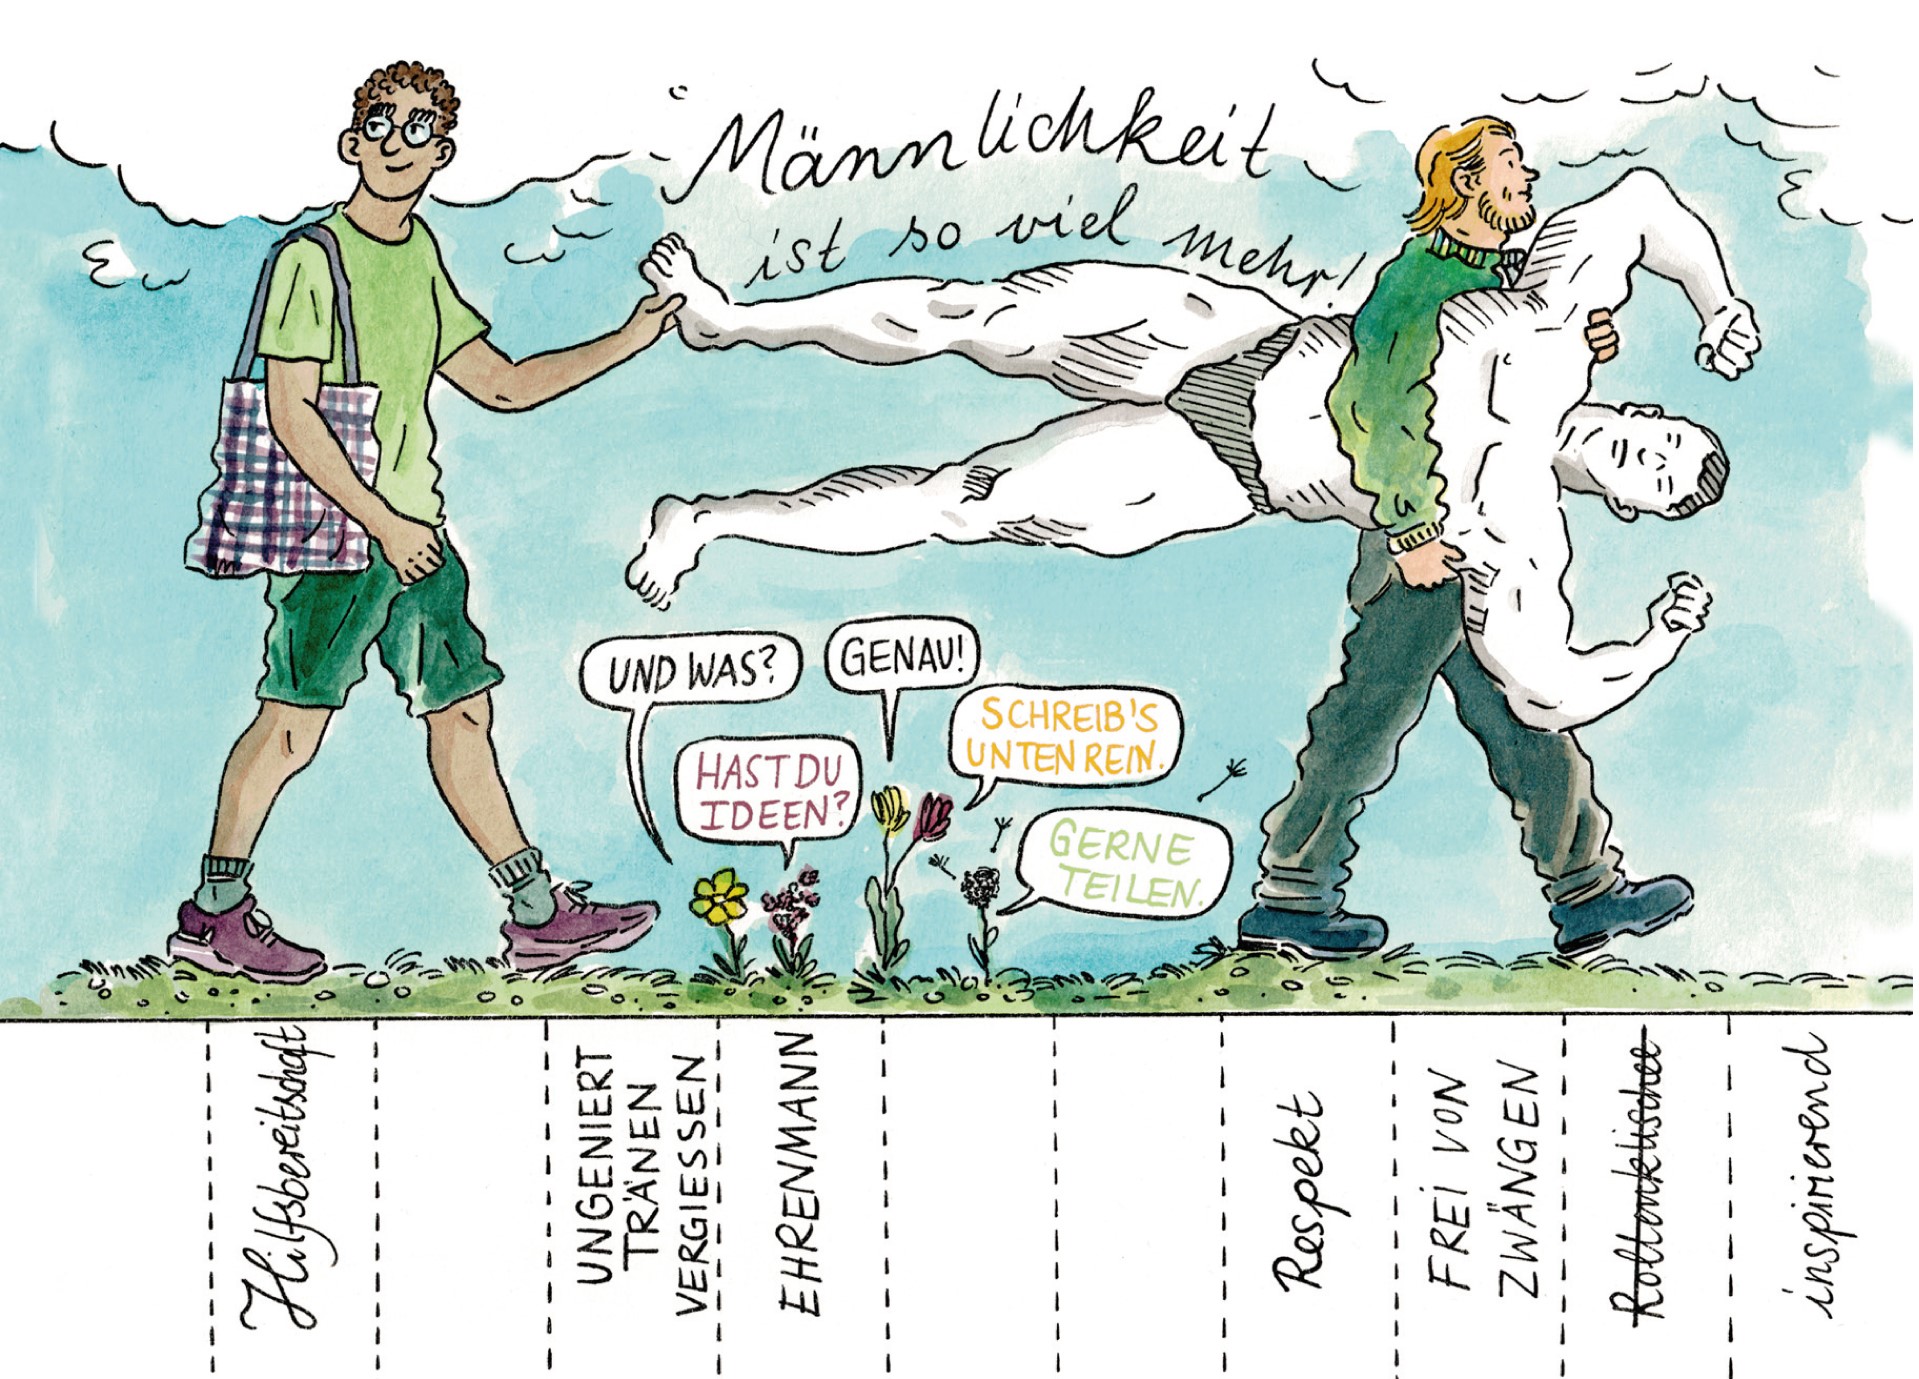 Männlichkeit
ist so viel mehr!
UND WAS?
GENAU!
HAST DU
IDEEN?
SCHREIB'S
UNTEN REIN.
GERNE
TEILEN.
Hilfsbereitschaft
UNGENIERT
TRÄNEN
VERGIESSEN
EHRENMANN
Respekt
FREI VON
ZWÄNGEN
Rollenklischee
inspirierend